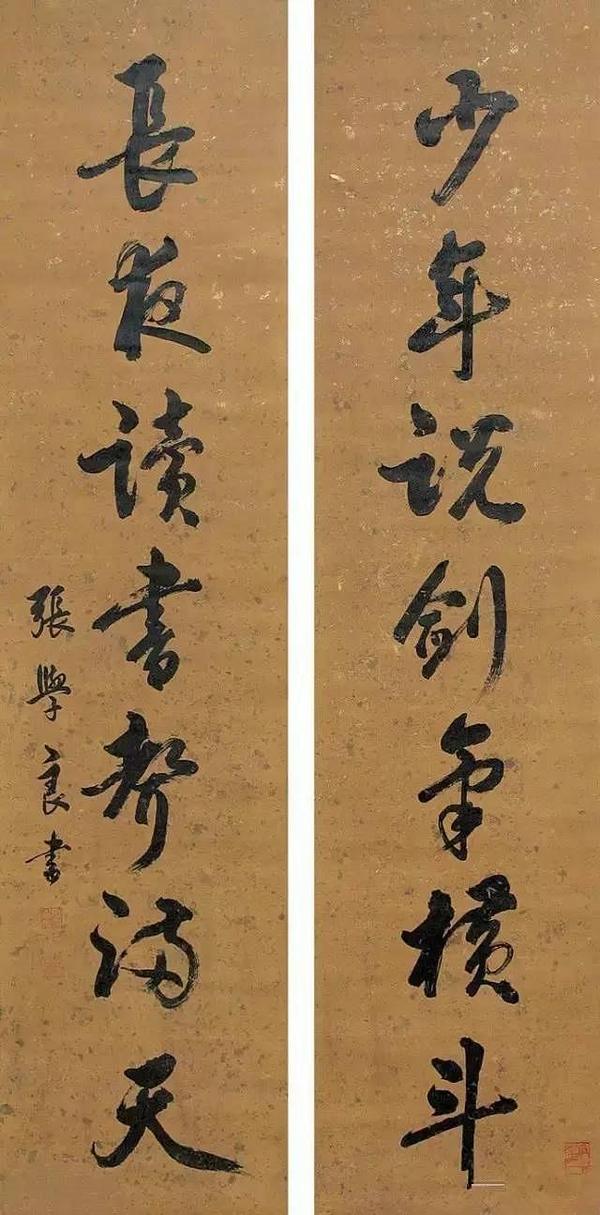 少年説劍氣橫斗
長夜讀書聲滿天
張學良書